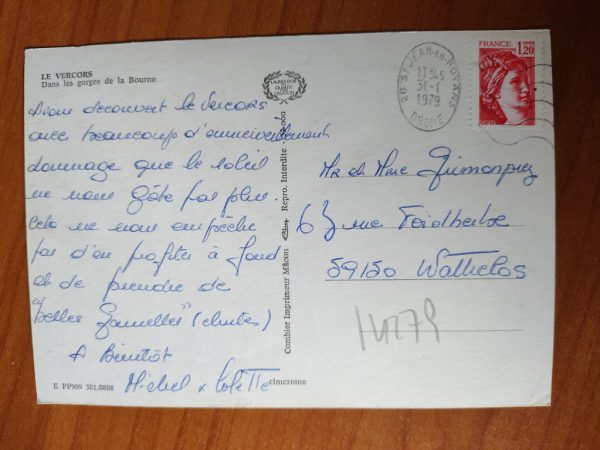 LE VERCORS
Dans les gorges de la Bourne
LAURÉAT DU
QUALITÉ
CRÉATION
26 ST JEAN-EN-ROYANS
17H45
31-1
1979
DROME
FRANCE
1,20
Avons découvert le Vercors
avec beaucoup d'émerveillement
dommage que le soleil
ne nous gâte pas plus.
Cela ne nous empêche
pas d'en profiter à fond
et de prendre de
"belles gamelles" (chutes)
A Bientôt
Michel & Colette
Combier Imprimeur Mâcon
Repro. Interdite
Mr et Mme
63 rue Faidherbe
59150 Wattrelos
14279
E PP999 301.0808
cimcrome